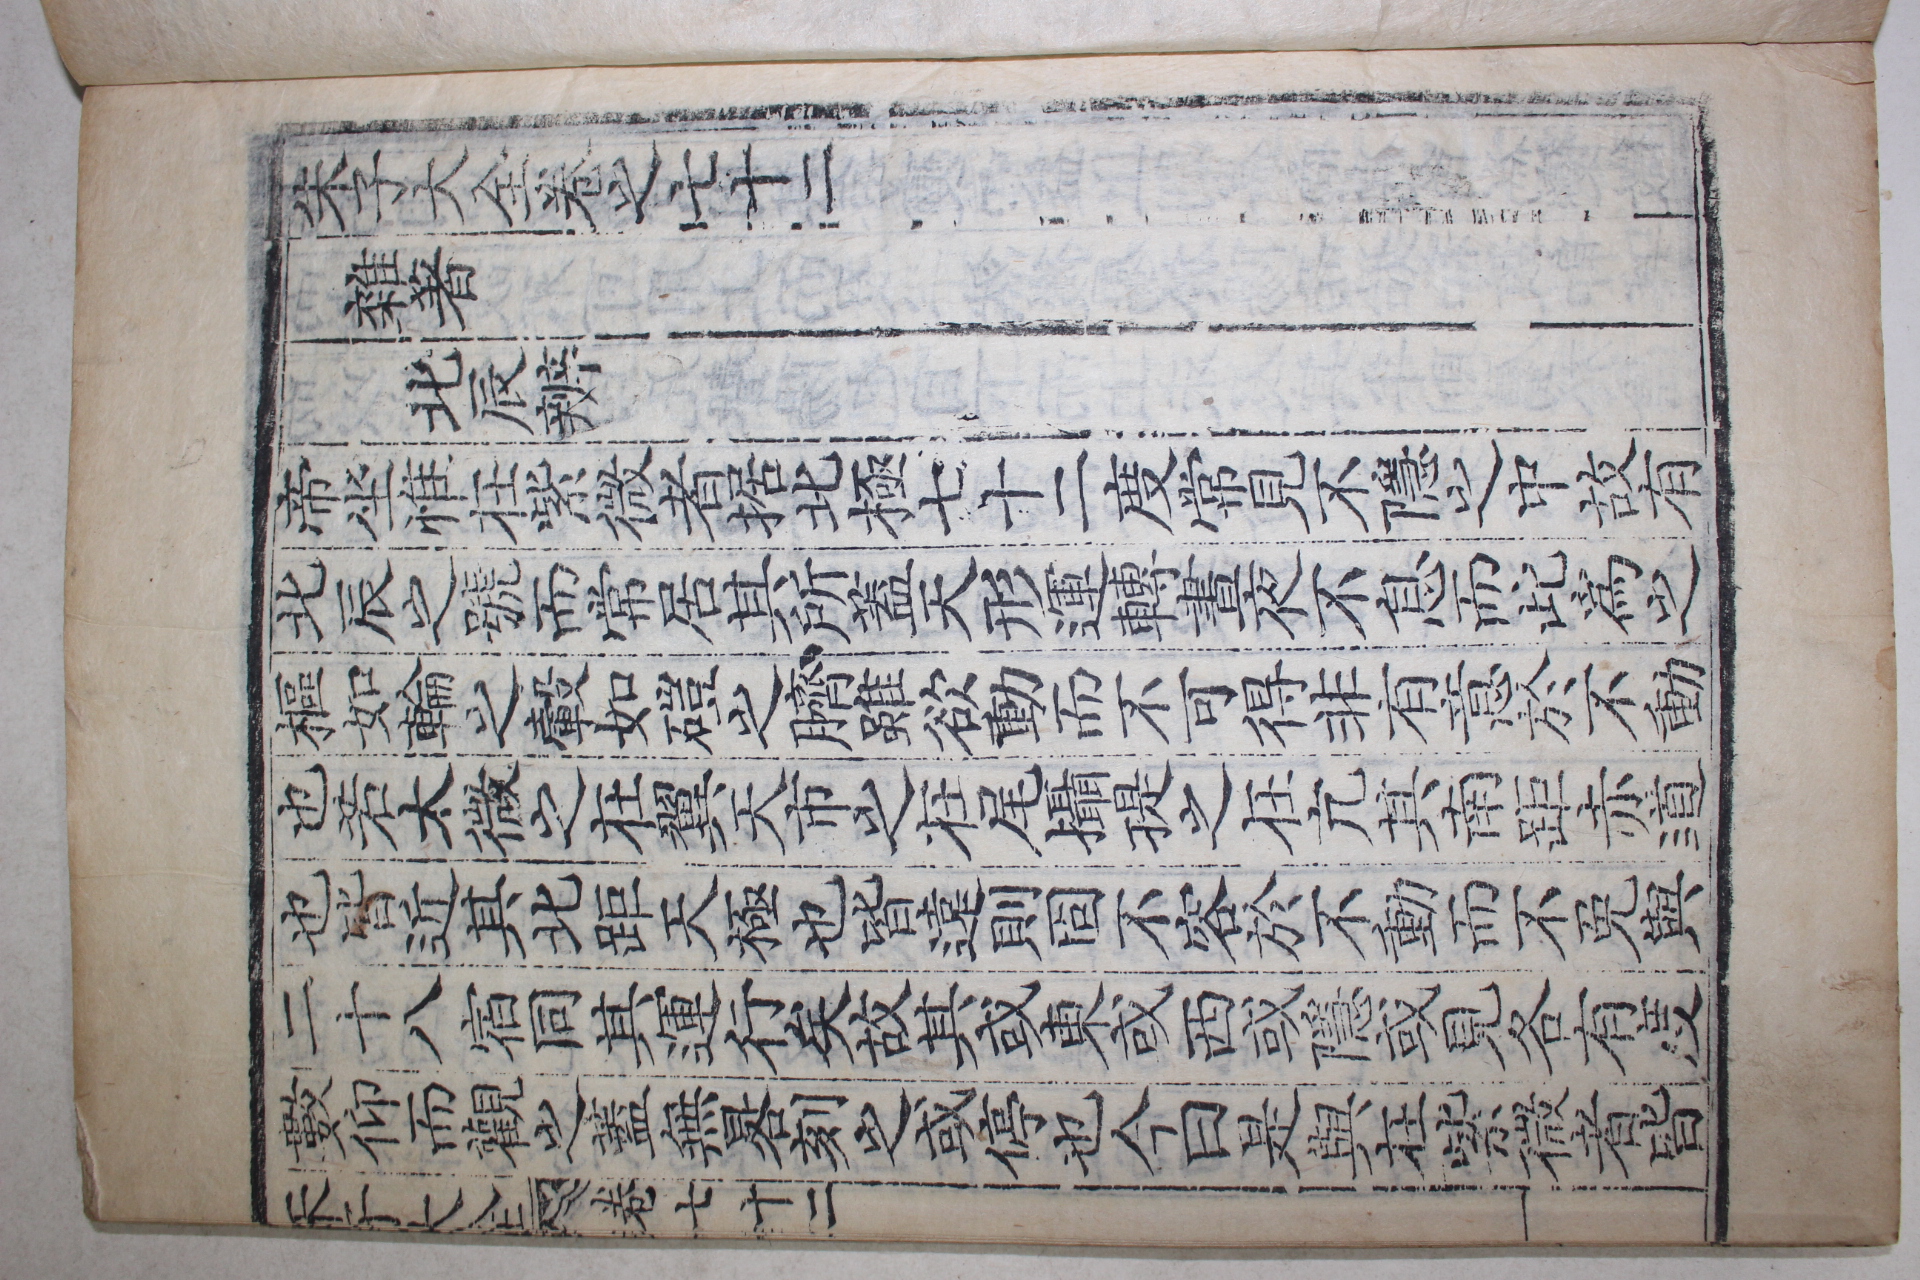 朱子大全卷之七十二
雜著
北辰辨
帝坐惟在紫微者据北極七十二度常見不隱之中故有
北辰之號而常居其所蓋天形運轉晝夜不息而此爲之
樞如輪之轂如磑之臍雖欲動而不可得非有意於不動
也若太微之在翼天市之在尾攝提之在亢其南距赤道
也皆近其北距天極也皆遠則固不容於不動而不免與
二十八宿同其運行矣故其或東或西或隱或見各有度
數仰而觀之蓋無晷刻之或停也今日是與在紫微者皆
朱子大全 卷七十二